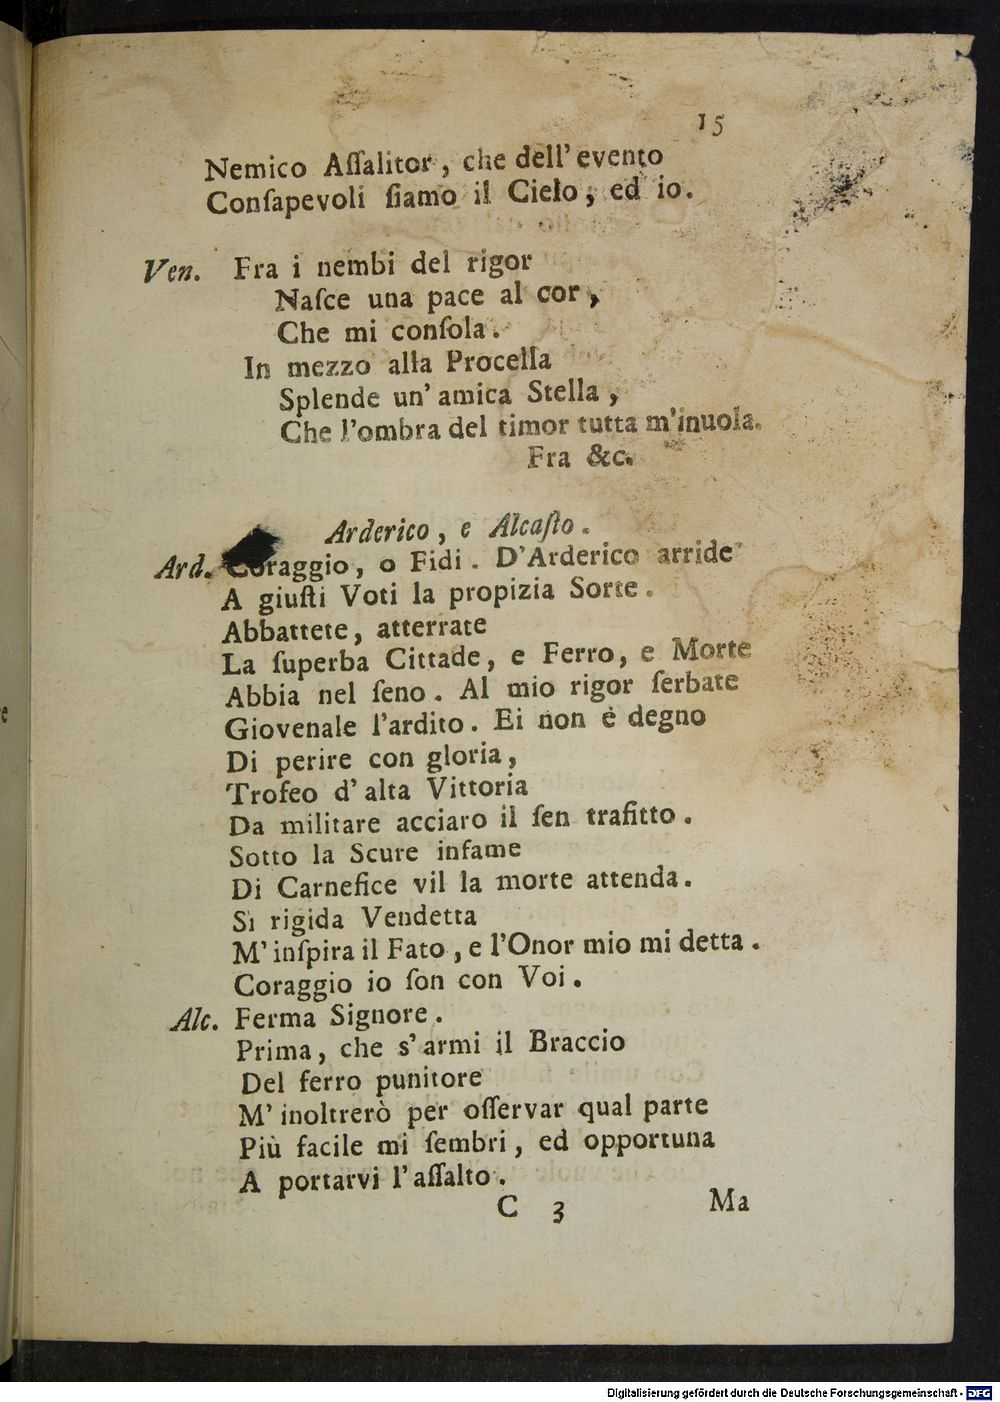 15
Nemico Aſſalitor, che dell' evento
Conſapevoli ſiamo il Cielo, ed io.
Ven. Fra i nembi del rigor
Naſce una pace al cor,
Che mi conſola.
In mezzo alla Procella
Splende un' amica Stella,
Che l'ombra del timor tutta m'inuola.
Fra &c.
Arderico, e Alcaſto.
Ard. Coraggio, o Fidi. D'Arderico arride
A giuſti Voti la propizia Sorte.
Abbattete, atterrate
La ſuperba Cittade, e Ferro, e Morte
Abbia nel ſeno. Al mio rigor ſerbate
Giovenale l'ardito. Ei non è degno
Di perire con gloria,
Trofeo d' alta Vittoria
Da militare acciaro il ſen trafitto.
Sotto la Scure infame
Di Carnefice vil la morte attenda.
Sì rigida Vendetta
M' inſpira il Fato, e l'Onor mio mi detta.
Coraggio io ſon con Voi.
Alc. Ferma Signore.
Prima, che s' armi il Braccio
Del ferro punitore
M' inoltrerò per oſſervar qual parte
Più facile mi ſembri, ed opportuna
A portarvi l' aſſalto.
C 3 Ma
Digitalisierung gefördert durch die Deutsche Forschungsgemeinschaft - DFG